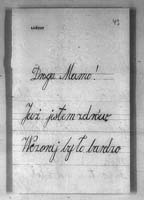 42
Droga Mamo!
Już jestem zdrów
Wczoraj było bardzo